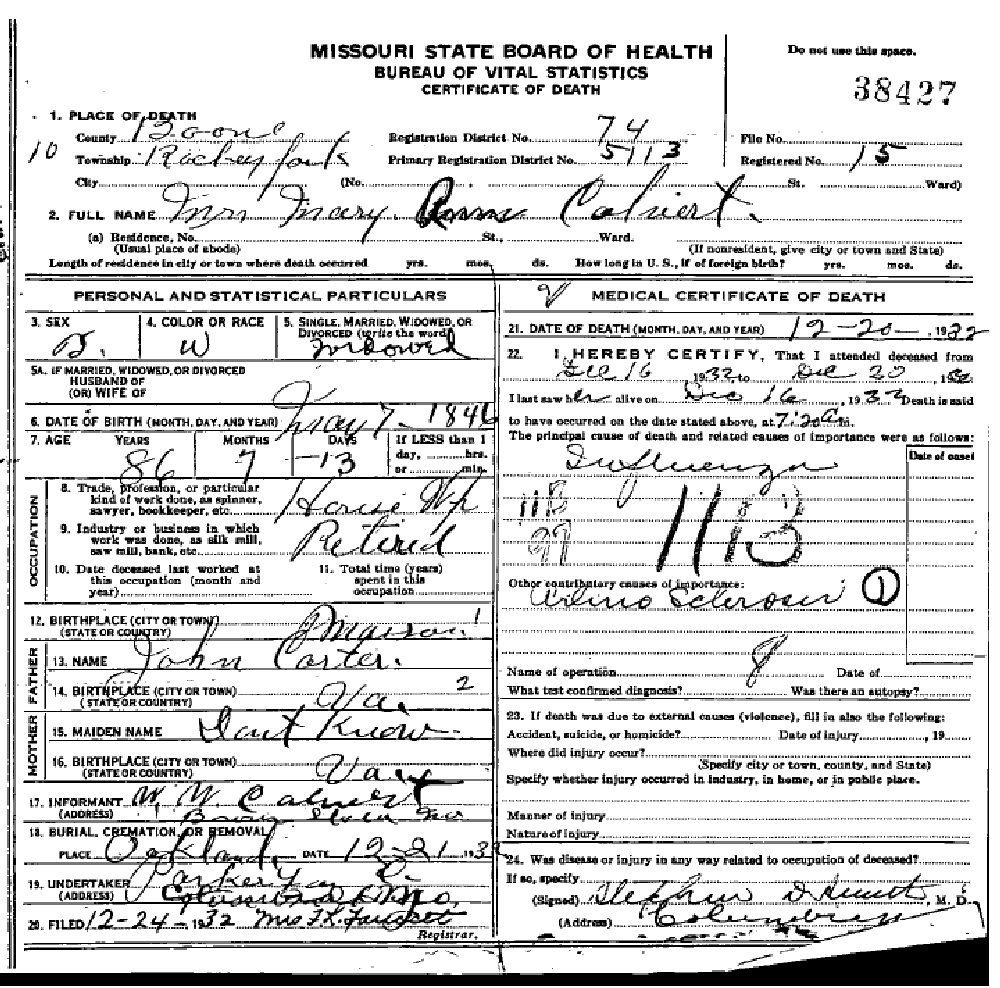 MISSOURI STATE BOARD OF HEALTH
BUREAU OF VITAL STATISTICS
CERTIFICATE OF DEATH
Do not use this space.
38427
1. PLACE OF DEATH
County Boone Registration District No. 74 File No.
10 Township Primary Registration District No. 5113 Registered No. 15
City (No. St. Ward)
2. FULL NAME Mrs Mary Ann Calvert.
(a) Residence, No. St., Ward.
(Usual place of abode) (If nonresident, give city or town and State)
Length of residence in city or town where death occurred yrs. mos. ds. How long in U. S., if of foreign birth? yrs. mos. ds.
PERSONAL AND STATISTICAL PARTICULARS
3. SEX 4. COLOR OR RACE 5. SINGLE, MARRIED, WIDOWED, OR
DIVORCED (write the word)
F. W Widowed
5A. IF MARRIED, WIDOWED, OR DIVORCED
HUSBAND OF
(OR) WIFE OF
6. DATE OF BIRTH (MONTH, DAY, AND YEAR) May 7 - 1846
7. AGE YEARS MONTHS DAYS If LESS than 1
day, hrs.
or min.
86 7 -13
OCCUPATION
8. Trade, profession, or particular
kind of work done, as spinner,
sawyer, bookkeeper, etc. House Wf
9. Industry or business in which
work was done, as silk mill,
saw mill, bank, etc. Retired
10. Date deceased last worked at
this occupation (month and
year)
11. Total time (years)
spent in this
occupation
12. BIRTHPLACE (CITY OR TOWN)
(STATE OR COUNTRY) 1
FATHER
13. NAME John Carter.
14. BIRTHPLACE (CITY OR TOWN)
(STATE OR COUNTRY) Va. 2
MOTHER
15. MAIDEN NAME Dont Know.
16. BIRTHPLACE (CITY OR TOWN)
(STATE OR COUNTRY) Va
17. INFORMANT W. W. Calvert
(ADDRESS) Mo
18. BURIAL, CREMATION, OR REMOVAL
PLACE Oakland DATE 12-21 1932
19. UNDERTAKER Parker
(ADDRESS) Columbia Mo.
20. FILED 12-24-1932 Mrs
Registrar.
MEDICAL CERTIFICATE OF DEATH
21. DATE OF DEATH (MONTH, DAY, AND YEAR) 12-20-1932
22. I HEREBY CERTIFY, That I attended deceased from
Dec 16 1932 to Dec 20, 1932
I last saw her alive on Dec 16, 1932 Death is said
to have occurred on the date stated above, at 7:20 a m.
The principal cause of death and related causes of importance were as follows:
Date of onset
Influenza
11B
97
11B
Other contributory causes of importance:
Sclerosis 1
Name of operation Date of
What test confirmed diagnosis? Was there an autopsy?
23. If death was due to external causes (violence), fill in also the following:
Accident, suicide, or homicide? Date of injury , 19
Where did injury occur?
(Specify city or town, county, and State)
Specify whether injury occurred in industry, in home, or in public place.
Manner of injury
Nature of injury
24. Was disease or injury in any way related to occupation of deceased?
If so, specify
(Signed) , M. D.
(Address) Columbia